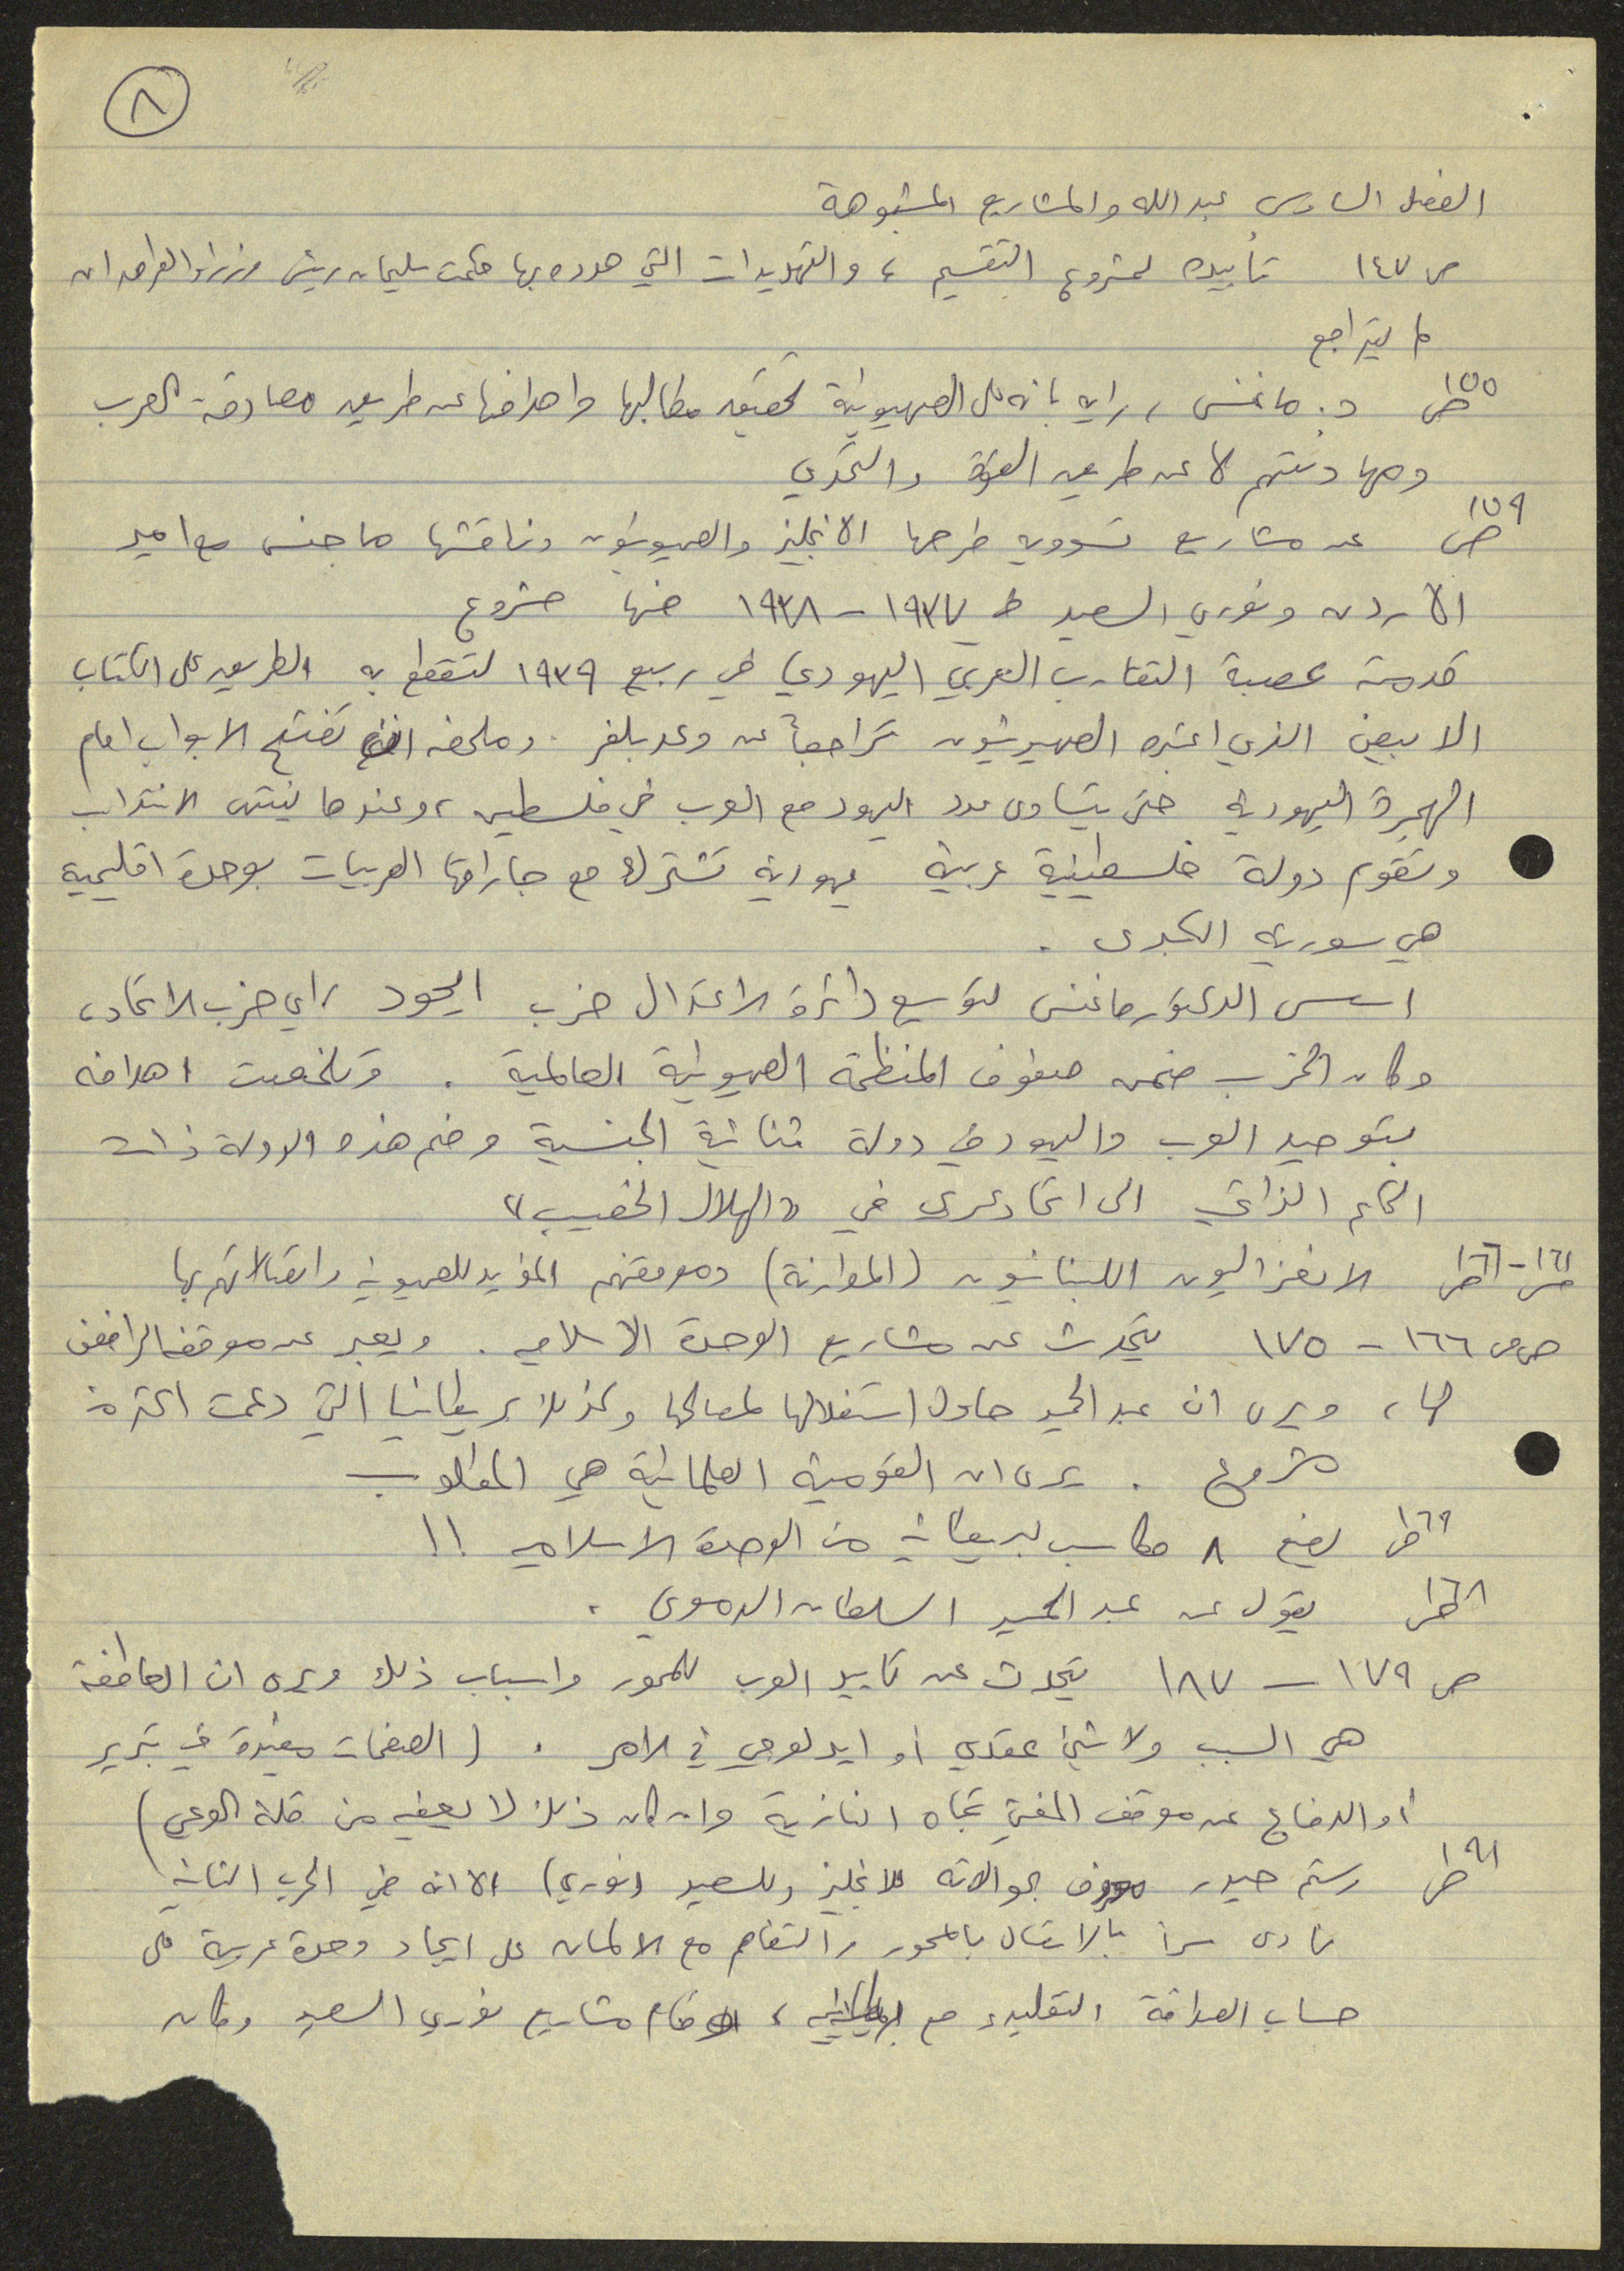 ٨
الفصل السادس عبدالله والمشاريع المشبوهة
ص ١٤٧ تأييده لمشروع التقسيم ، والتهديدات التي هدده بها حكمت سليمان رئيس وزراء العراق ان
لم يتراجع
ص ١٥٥ د. ماغنس ، رايه بانه على الصهيونية تحقيق مطالبها واهدافها عن طريق مصادقة العرب
ومهادنتهم لا عن طريق القوة والتحدي
ص ١٥٩ عن مشاريع تسووية طرحها الانجليز والصهيونيون وناقشها ماجنس مع امير
الاردن ونوري السعيد ١٩٣٧ - ١٩٣٨ منها مشروع
قدمته عصبة التقارب العربي اليهودي في ربيع ١٩٣٩ لتقطع به الطريق على الكتاب
الابيض الذي اعتبره الصهيونيون تراجعاً عن وعد بلفر . وملخصه ان تفتح الابواب امام
الهجرة اليهودية حتى يتساوى عدد اليهود مع العرب في فلسطين ، وعندها ينتهي الانتداب
وتقوم دولة فلسطينية عربية يهودية تشترك مع جاراتها العربيات بوحدة اقليمية
هي سورية الكبرى .
اسس الدكتور ماغنس لتوسيع دائرة الاعتدال حزب ايحود ، اي حزب الاتحاد ،
وكان الحزب ضمن صفوف المنظمة الصهيونية العالمية . وتلخصت اهدافه
بتوحيد العرب واليهود في دولة ثنائية الجنسية وضم هذه الدولة ذات
الحكم الذاتي الى اتحاد عربي في «الهلال الخصيب»
ص ١٦١ - ص ١٦٦ الانعزاليون اللبنانيون (الموارنة) وموقفهم المؤيد للصهيونية واتصالاتهم بها
ص ص ١٦٦ - ١٧٥ يتحدث عن مشاريع الوحدة الاسلامية . ويعبر عن موقفه الرافض
لها ، ويرى ان عبد الحميد حاول استغلالها لمصالحها وكذلك بريطانيا التي دعمت اكثر من
مشروع . يرى ان القومية العلمانية هي المطلوب
ص ١٦٩ يضع ٨ مكاسب لبريطانية من الوحدة الاسلامية !!
ص ١٦٨ يقول عن عبد الحميد السلطان الدموي .
ص ١٧٩ - ١٨٧ يتحدث عن تأييد العرب للمحور واسباب ذلك ويرى ان العاطفة
هي السبب ولا شيئ عقدي أو ايدلوجي في الامر . (الصفحات مفيدة في تبرير
أو الدفاع عن موقف المفتي تجاه النازية وان كان ذلك لا يعفيه من قلة الوعي)
ص ١٩١ رستم حيدر معروف بموالاته للانجليز وللسعيد (نوري) الا انه في الحرب الثانية
نادى سراً بالاتصال بالمحور والتفاهم مع الالمان على ايجاد وحدة عربية على
حساب الصداقة التقليدية مع بريطانية ، مشاريع نوري السعيد وكان